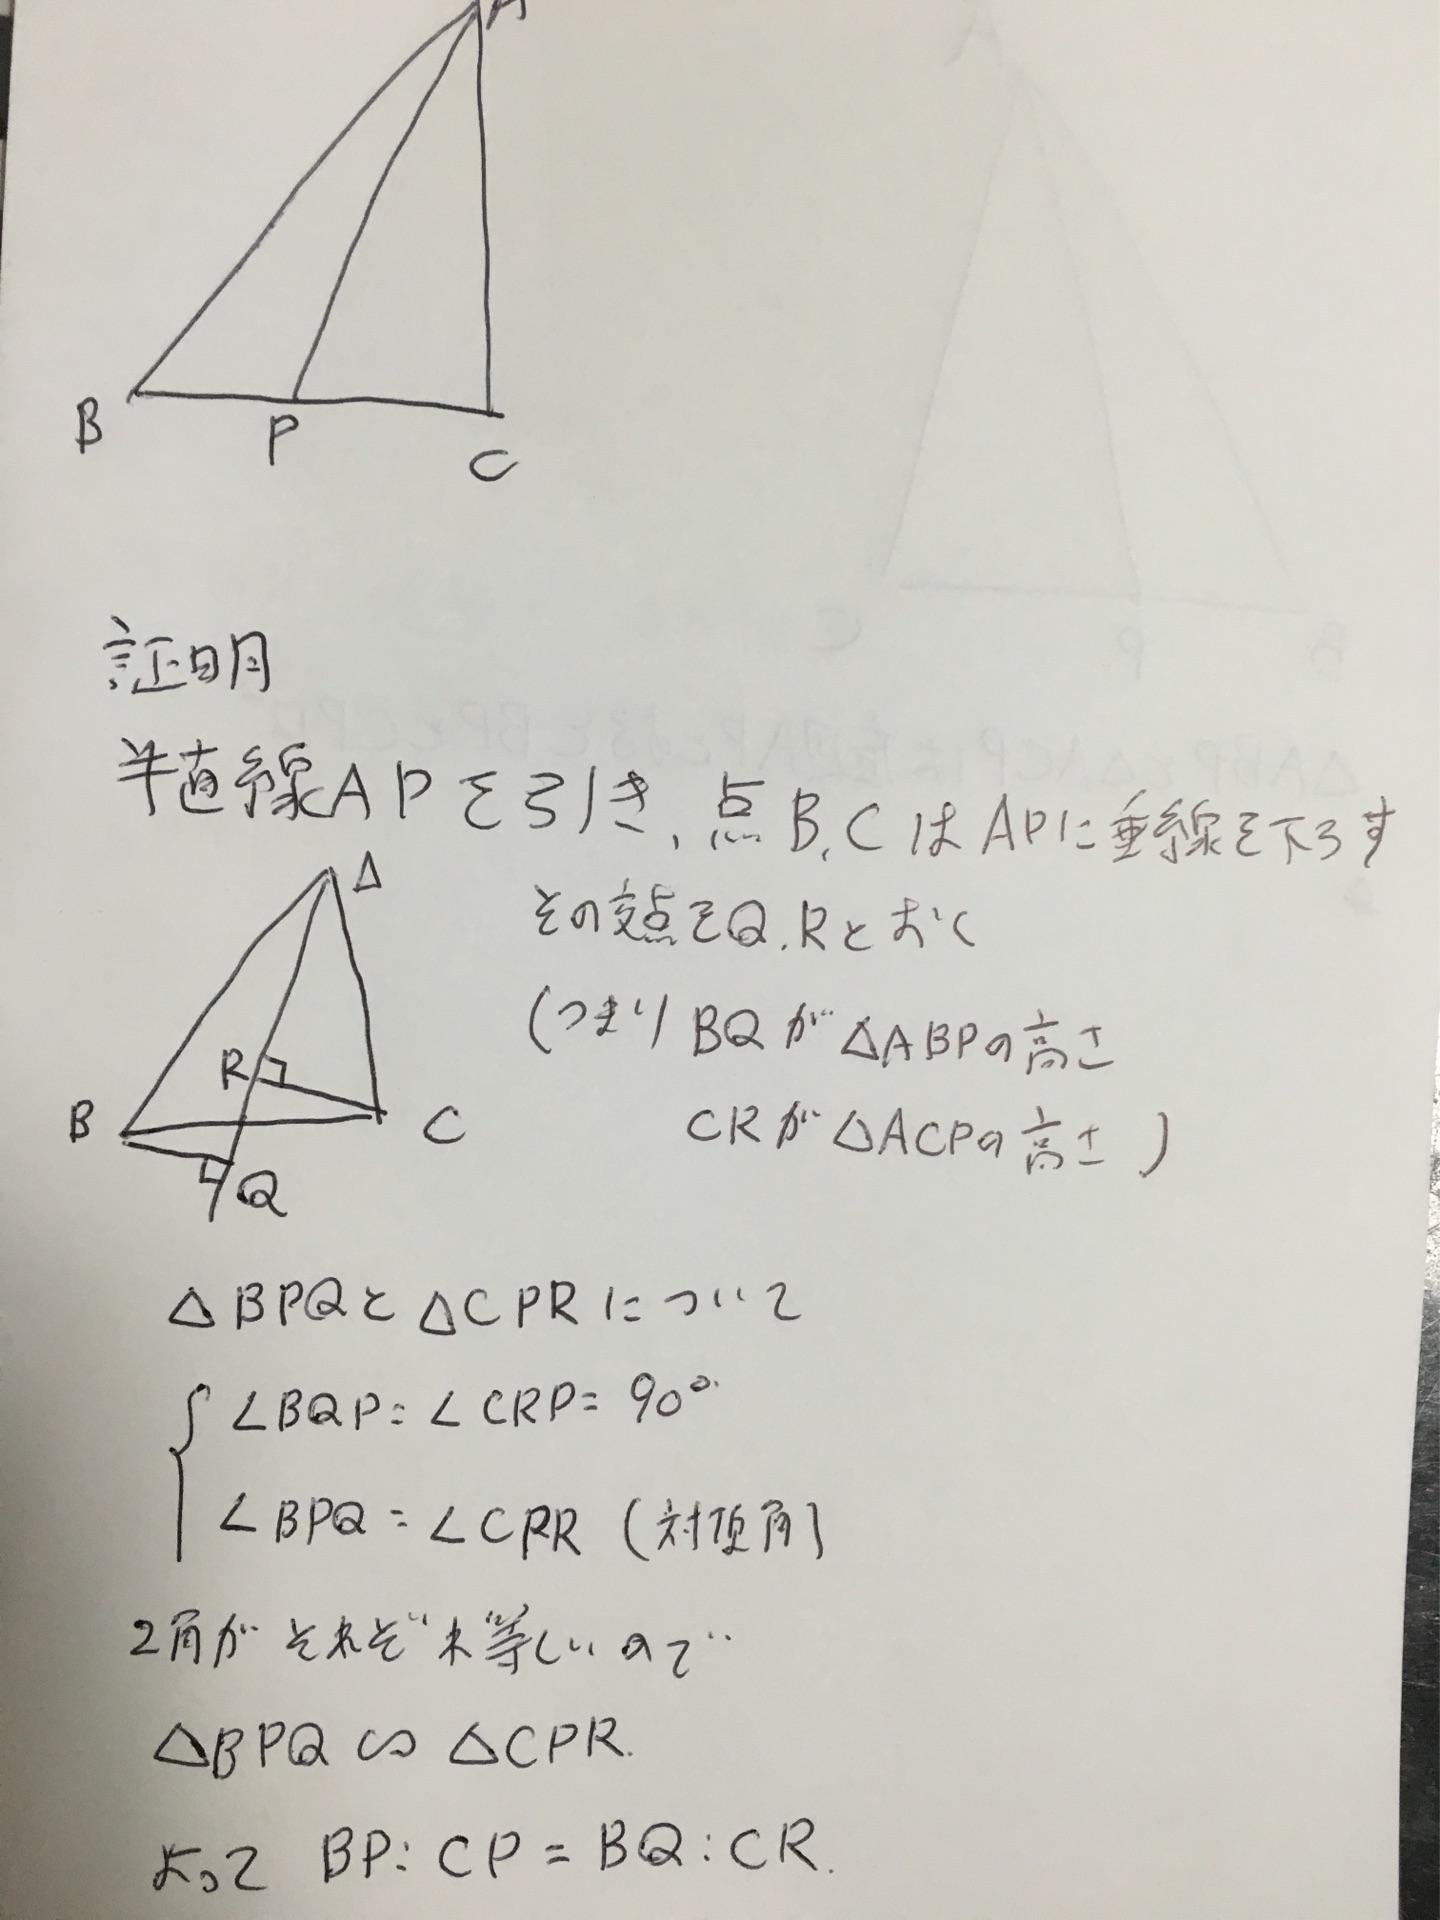 A
B
P
C
証明
半直線APを引き、点B,CはAPに垂線を下ろす
A
その交点をQ,Rとおく
(つまりBQが△ABPの高さ
R
B
C
CRが△ACPの高さ)
Q
△BPQと△CPRについて
∠BQP=∠CRP=90°
∠BPQ=∠CPR(対頂角)
2角がそれぞれ等しいので
△BPQ∽△CPR.
よって BP:CP=BQ:CR.